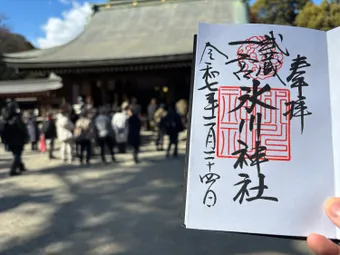 奉拝
武蔵
一宮
氷川神社
令和七年二月二十四日